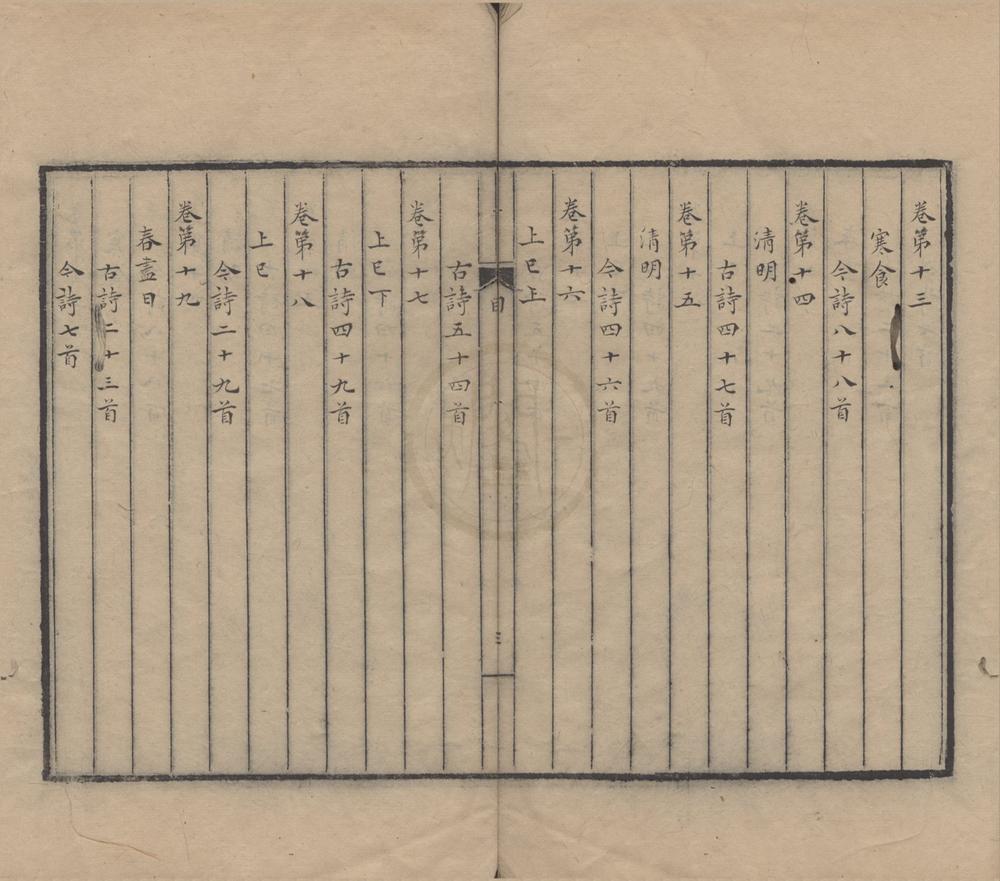 卷第十三
寒食
今詩八十八首
卷第十四
清明
古詩四十七首
卷第十五
清明
今詩四十六首
卷第十六
上巳上
目
三
古詩五十四首
卷第十七
上巳下
古詩四十九首
卷第十八
上巳
今詩二十九首
卷第十九
春盡日
古詩二十三首
今詩七首